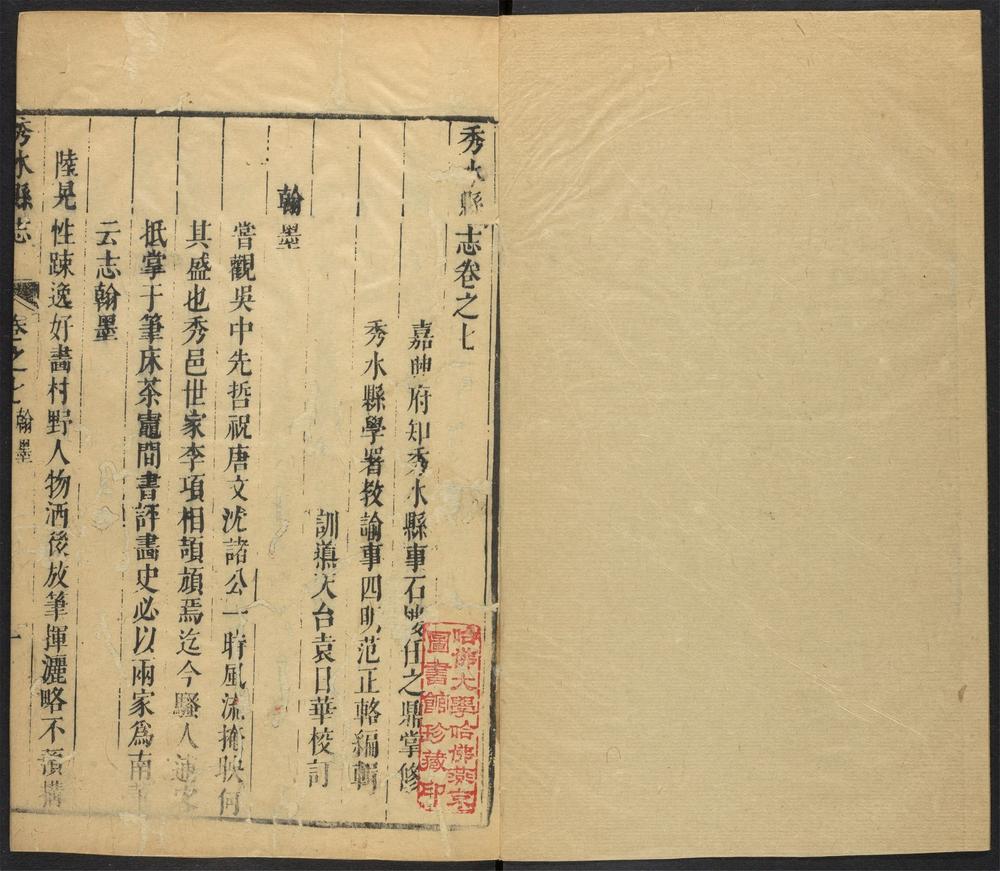 秀水縣志卷之七
嘉興府知秀水縣事石門任之鼎掌修
秀水縣學署教諭事四明范正輅編輯
訓導天台袁日華校訂
翰墨
嘗觀吳中先哲祝唐文沈諸公一時風流掩映何
其盛也秀邑世家李項相頡頏焉迄今騷人逋客
抵掌于筆床茶竈間書評畫史必以兩家爲南
云志翰墨
陸晃性踈逸好畫村野人物酒後放筆揮灑略不預搆
秀水縣志
卷之七
翰墨
一
哈佛大學哈佛燕京
圖書館珍藏印